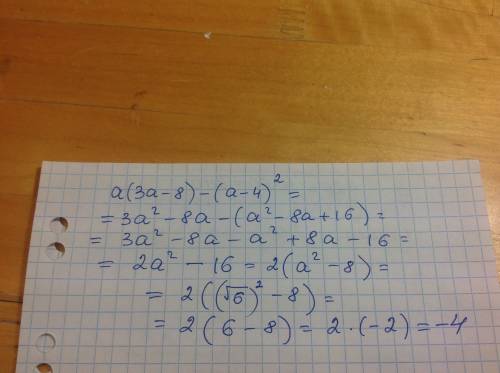 a(3a-8)-(a-4)² =
= 3a² - 8a - (a² - 8a + 16) =
= 3a² - 8a - a² + 8a - 16 =
= 2a² - 16 = 2(a² - 8) =
= 2((√6)² - 8) =
= 2(6 - 8) = 2·(-2) = -4